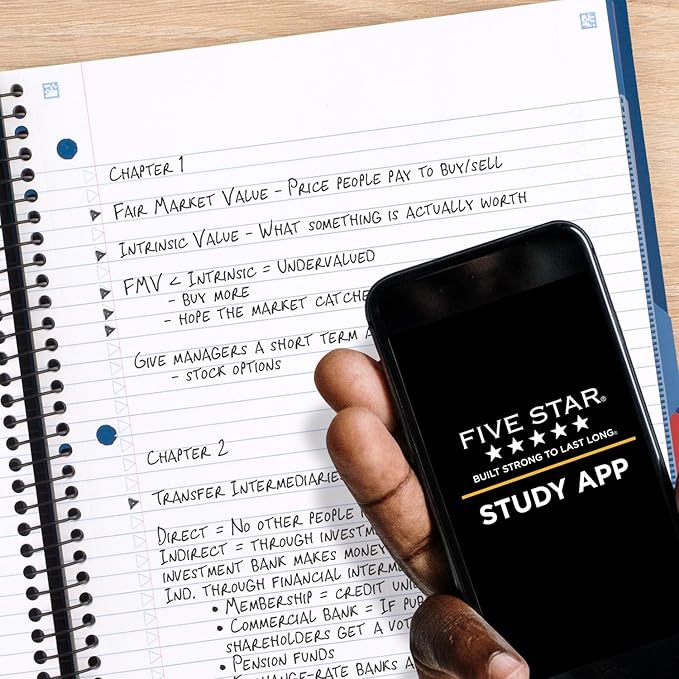 CHAPTER 1
FAIR MARKET VALUE - PRICE PEOPLE PAY TO BUY/SELL
INTRINSIC VALUE - WHAT SOMETHING IS ACTUALLY WORTH
FMV < INTRINSIC = UNDERVALUED
- BUY MORE
- HOPE THE MARKET CATCHE
GIVE MANAGERS A SHORT TERM
- STOCK OPTIONS
CHAPTER 2
TRANSFER INTERMEDIARIES
DIRECT = NO OTHER PEOPLE
INDIRECT = THROUGH INVESTM
INVESTMENT BANK MAKES MONEY
IND. THROUGH FINANCIAL INTERM
• MEMBERSHIP = CREDIT UNI
• COMMERCIAL BANK = IF PUB
SHAREHOLDERS GET A VOT
• PENSION FUNDS
CHANGE-RATE BANKS A
FIVE STAR®
★★★★★
BUILT STRONG TO LAST LONG®
STUDY APP